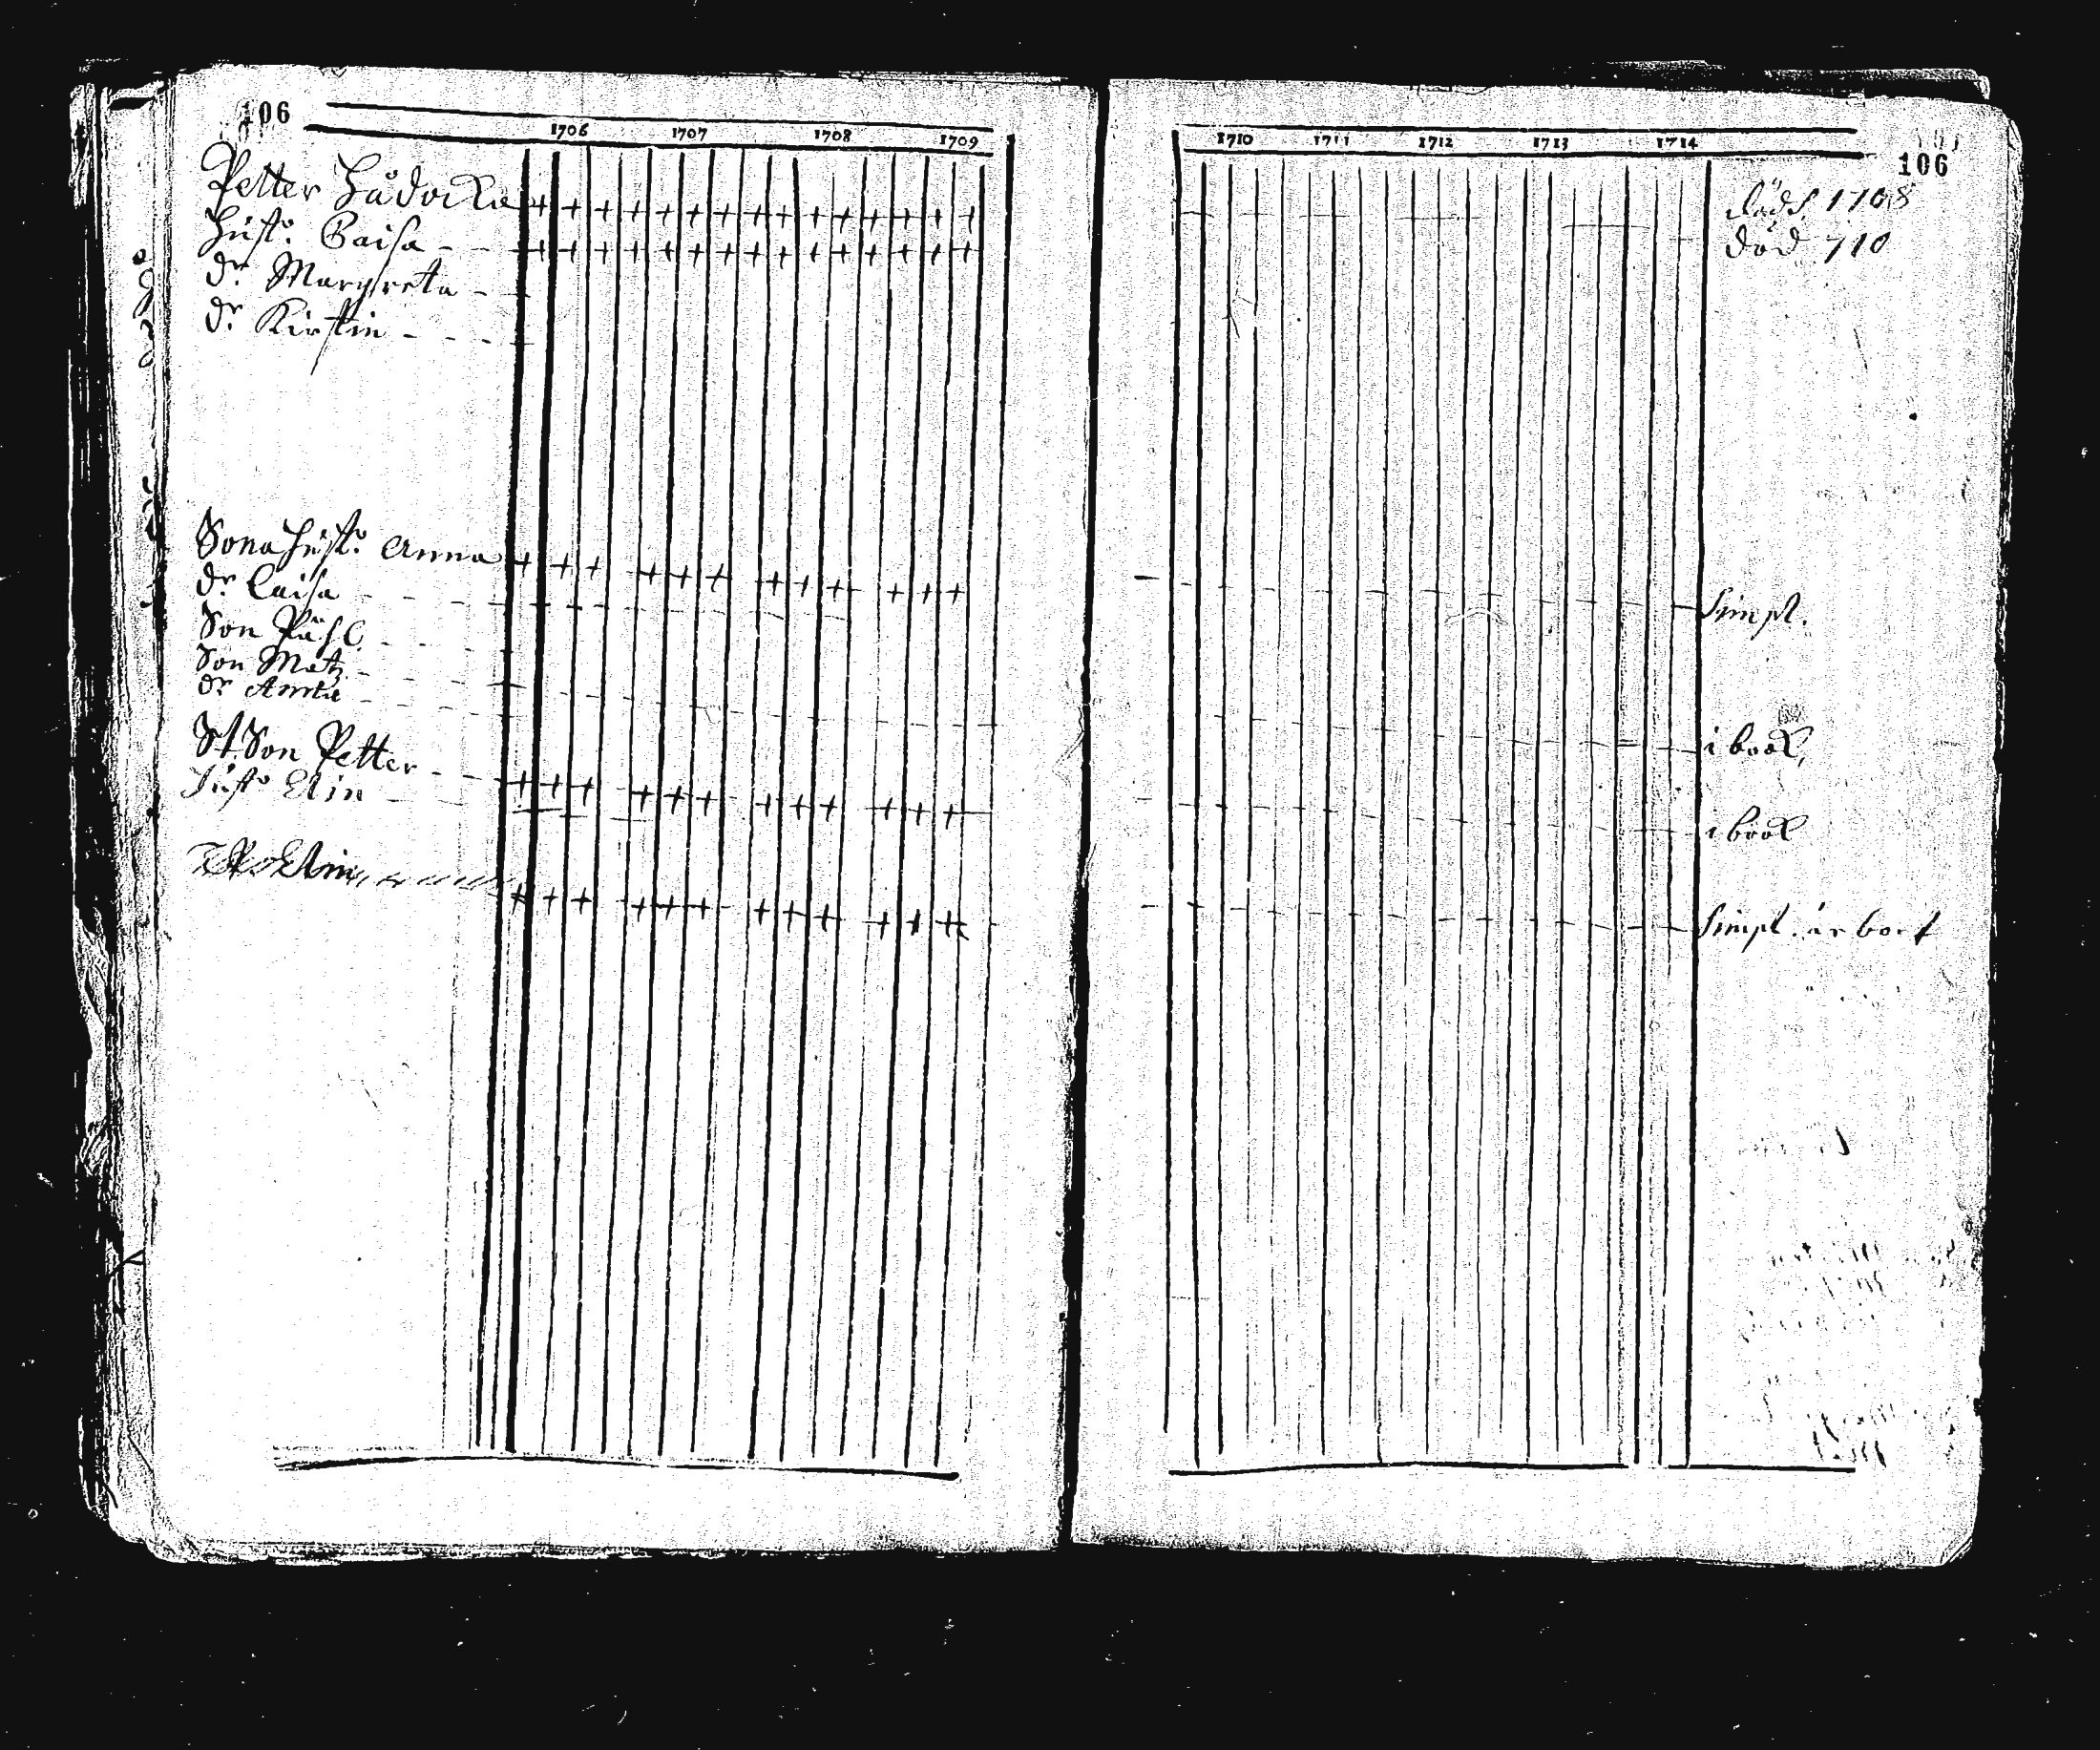 106
1706 1707 1708 1709
Petter
Hust: Caisa
dr. Margreta
dr. Kirstin
Sonahust: Anna
dr. Caisa
Son
Son Matz
dr Anna
St. Son Petter
Hust: Elin
1710 1711 1712 1713 1714
106
1708
död 710
simpl.
i book
i book
simpl. är bort